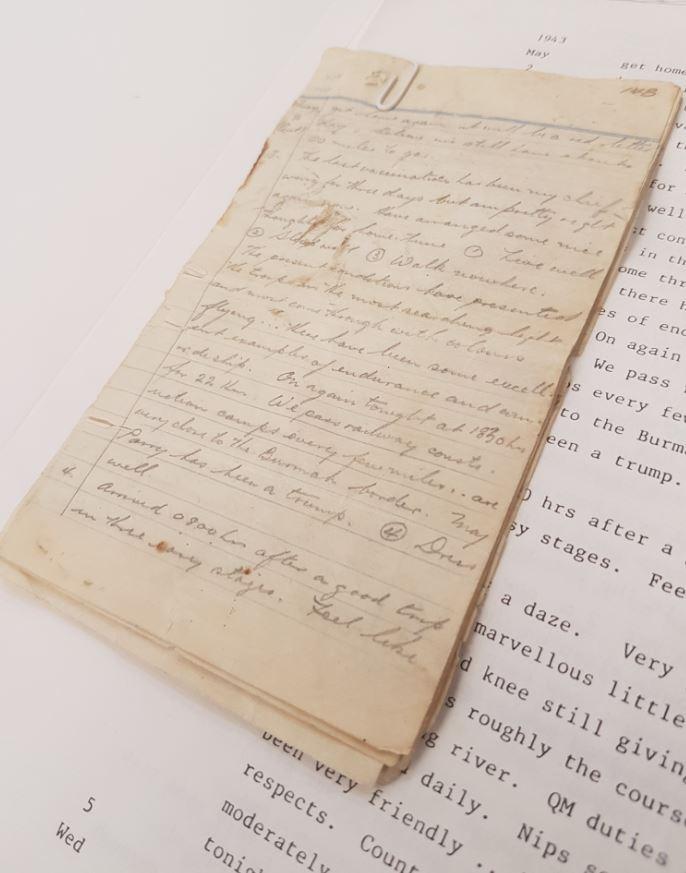 1943
May
2
get home
14B
get home again it will be a red letter
day. I believe we still have about
30 miles to go.
3. The last vaccination has been my chief
worry for three days but am pretty right
again now. Have arranged some nice
thoughts for home. June ① Live well
② Sleep well ③ Walk nowhere.
The present conditions have presented
the troops in the most searching light
and most come through with colours
flying ... there have been some excell-
ent examples of endurance and com-
radeship. On again tonight at 1830 hrs
for 22 km. We pass railway constr-
uction camps every few miles .. are
very close to the Burmah border. May
Parry has been a trump. ④ Dress
well
4. Arrived 0800 hrs after a good tramp
in three easy stages. Feel like
for
well
t con
in th
ome thr
there h
es of end
On again
We pass
s every few
to the Burma
een a trump.
0 hrs after a
sy stages. Fee
a daze. Very
marvellous little
d knee still giving
s roughly the course
g river. QM duties
been very friendly daily. Nips
respects. Count
5 moderately
Wed tonig